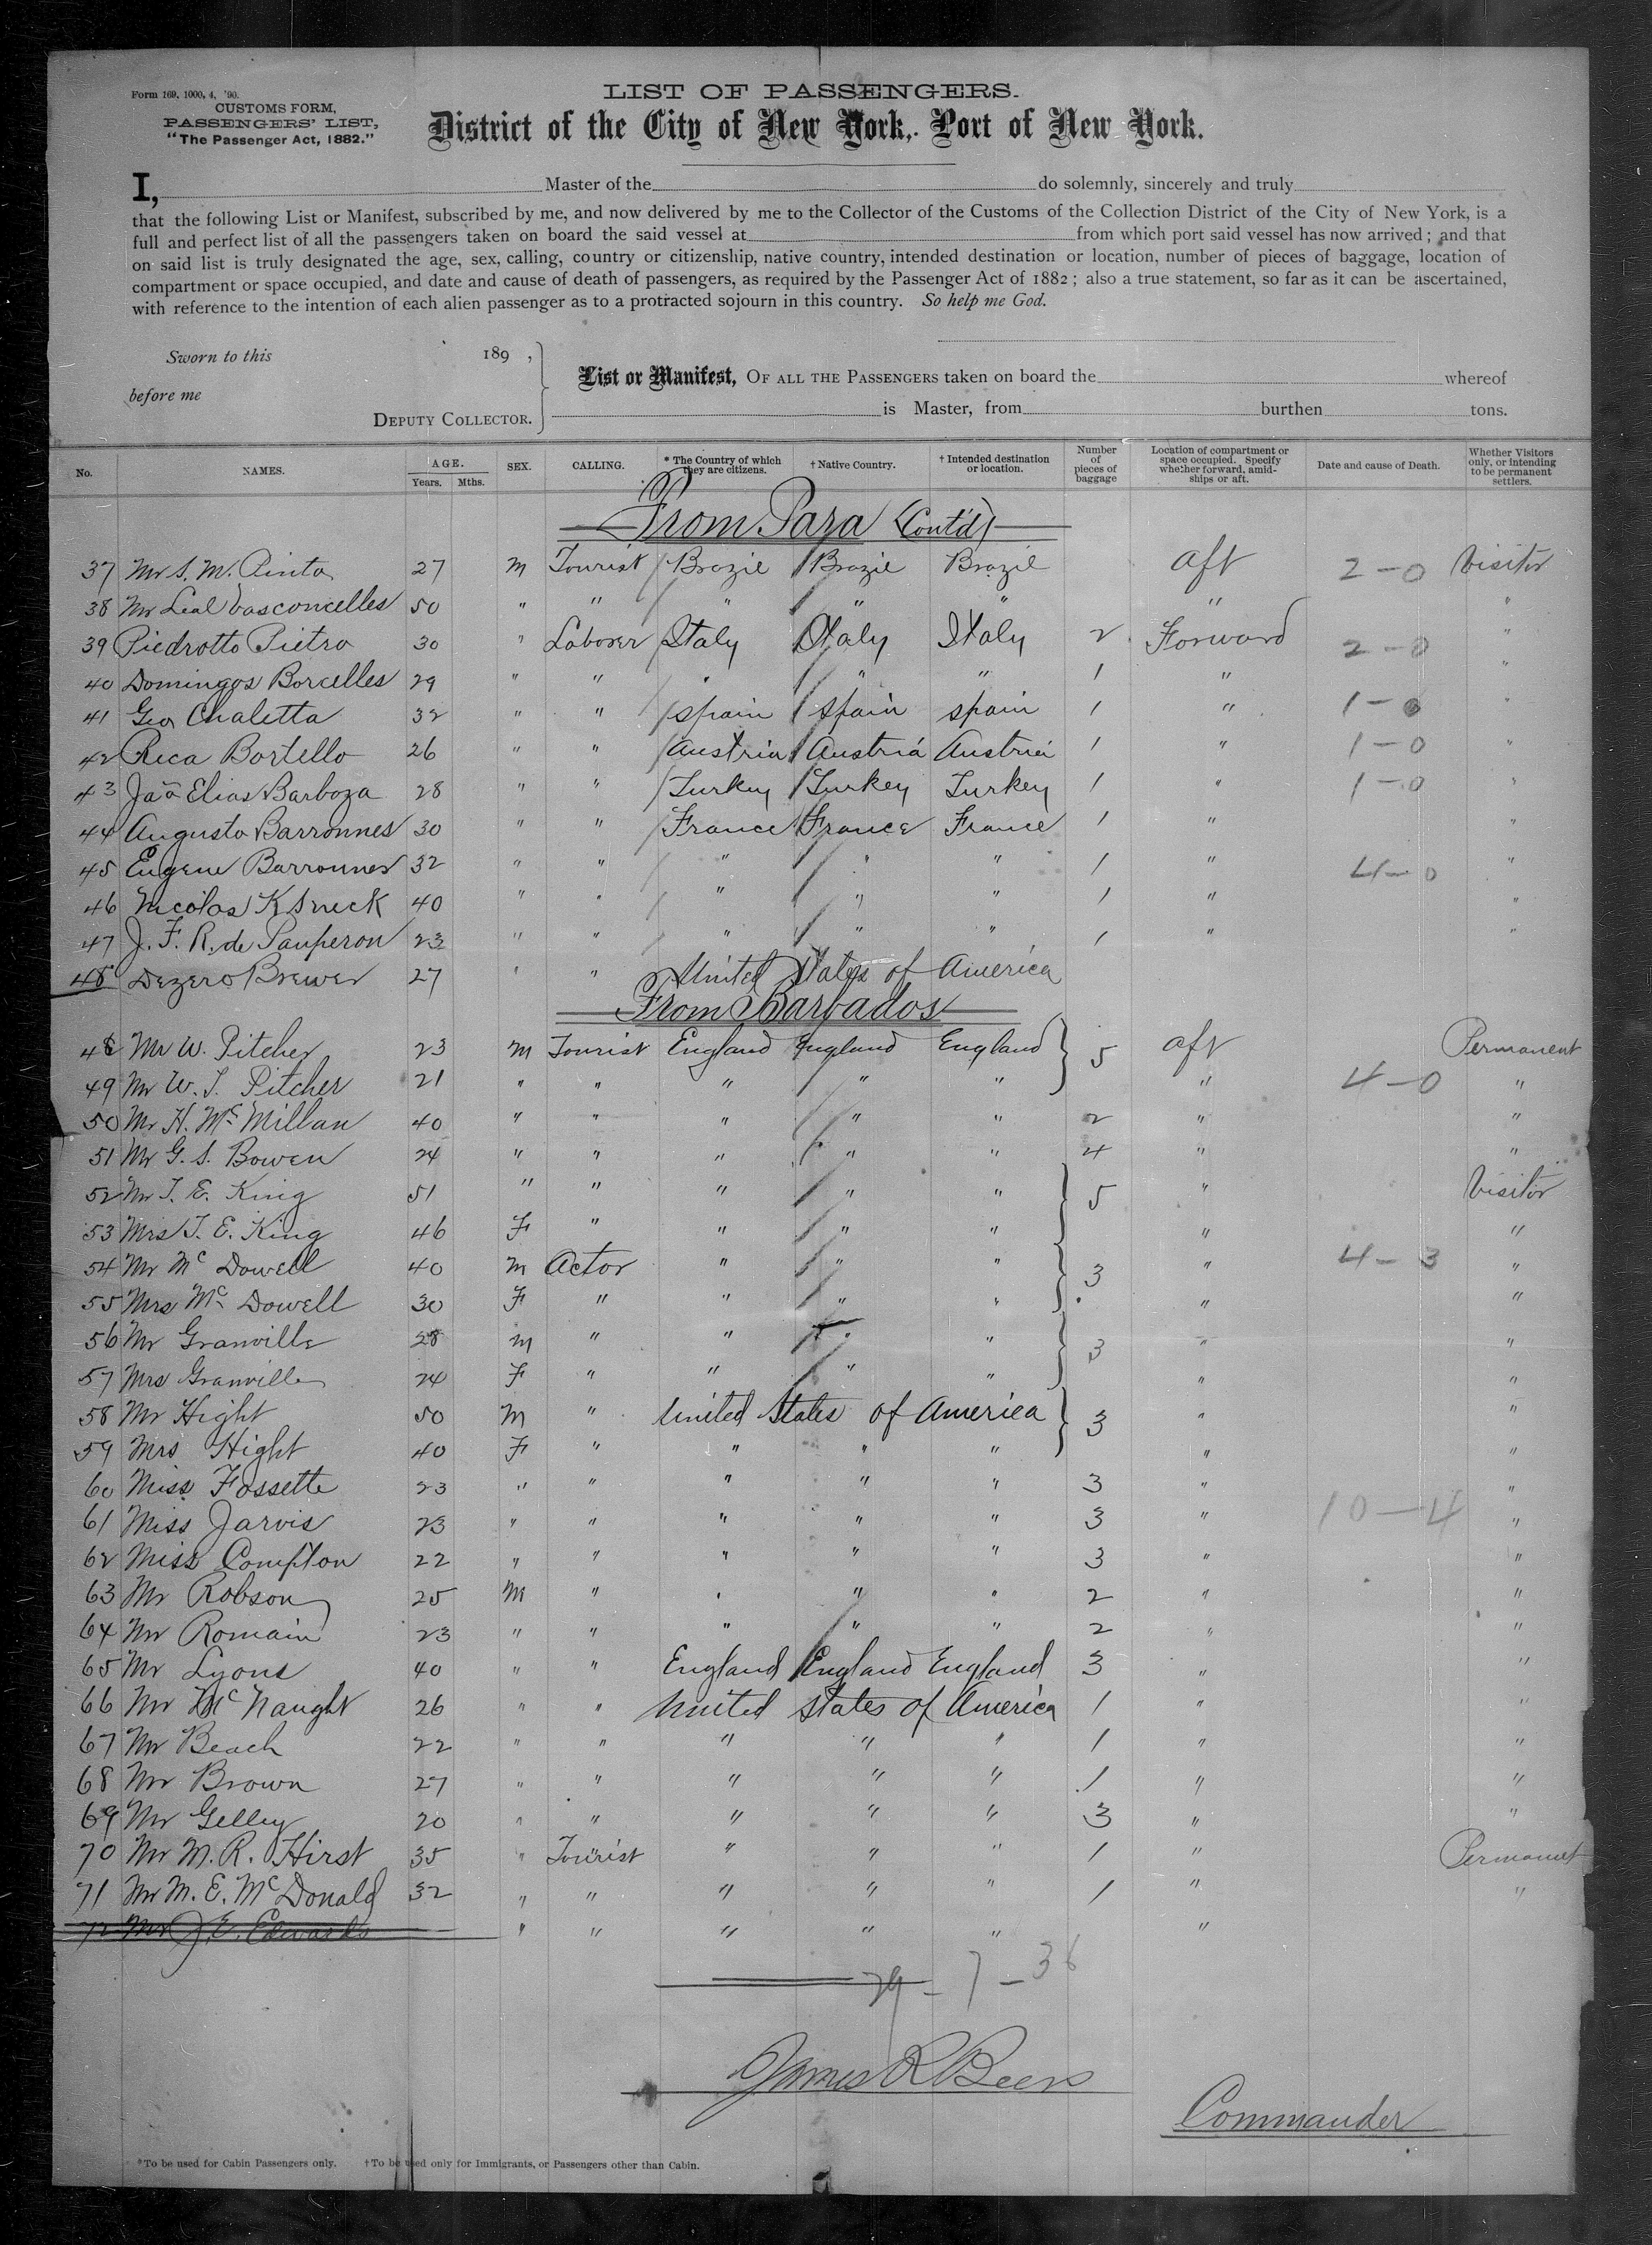 Form 169, 1000, 4, '90.
CUSTOMS FORM,
PASSENGERS' LIST,
"The Passenger Act, 1882."
LIST OF PASSENGERS.
District of the City of New York, Port of New York.
I, Master of the do solemnly, sincerely and truly
that the following List or Manifest, subscribed by me, and now delivered by me to the Collector of the Customs of the Collection District of the City of New York, is a
full and perfect list of all the passengers taken on board the said vessel at from which port said vessel has now arrived; and that
on said list is truly designated the age, sex, calling, country or citizenship, native country, intended destination or location, number of pieces of baggage, location of
compartment or space occupied, and date and cause of death of passengers, as required by the Passenger Act of 1882; also a true statement, so far as it can be ascertained,
with reference to the intention of each alien passenger as to a protracted sojourn in this country. So help me God.
Sworn to this 189 ,
before me
DEPUTY COLLECTOR.
List or Manifest, OF ALL THE PASSENGERS taken on board the whereof
is Master, from burthen tons.
No. NAMES. AGE. Years. Mths. SEX. CALLING. * The Country of which they are citizens. † Native Country. † Intended destination or location. Number of pieces of baggage Location of compartment or space occupied. Specify whether forward, amidships or aft. Date and cause of Death. Whether Visitors only, or intending to be permanent settlers.
From Para (Cont'd)
37 Mr S. M. Pinto 27 M Tourist Brazil Brazil Brazil aft 2-0 Visitor
38 Mr Leal Vasconcelles 50 " " " " " " "
39 Piedrotto Pietro 30 " Laborer Italy Italy Italy 2 Forward 2-0 "
40 Domingos Borcelles 29 " " " " " 1 " "
41 Geo Chaletta 32 " " Spain Spain Spain 1 " 1-0 "
42 Rica Bortello 26 " " Austria Austria Austria 1 " 1-0 "
43 Jaõ Elias Barboza 28 " " Turkey Turkey Turkey 1 " 1-0 "
44 Augusto Barronnes 30 " " France France France 1 " "
45 Eugene Barronnes 32 " " " " " 1 " 4-0 "
46 Nicolas 40 " " " " " 1 " "
47 J. F. R. de Pauperon 23 " " " " " 1 " "
48 Dezero Brewer 27 " " United States of America
From Barbados
48 Mr W. Pitcher 23 M Tourist England England England 5 aft Permanent
49 Mr W. T. Pitcher 21 " " " " " " 4-0 "
50 Mr H. McMillan 40 " " " " " 2 " "
51 Mr G. S. Bowen 24 " " " " " 4 " "
52 Mr T. E. King 51 " " " " " 5 " Visitor
53 Mrs T. E. King 46 F " " " " " "
54 Mr McDowell 40 M Actor " " " 3 " 4-3 "
55 Mrs McDowell 30 F " " " " " "
56 Mr Granville 28 M " " " " 3 " "
57 Mrs Granville 24 F " " " " " "
58 Mr Hight 50 M " United States of America 3 " "
59 Mrs Hight 40 F " " " " " "
60 Miss Fossette 23 " " " " " 3 " "
61 Miss Jarvis 23 " " " " " 3 " 10-4 "
62 Miss Compton 22 " " " " " 3 " "
63 Mr Robson 25 M " " " " 2 " "
64 Mr Romain 23 " " " " " 2 " "
65 Mr Lyons 40 " " England England England 3 " "
66 Mr McNaught 26 " " United States of America 1 " "
67 Mr Beach 22 " " " " " 1 " "
68 Mr Brown 27 " " " " " 1 " "
69 Mr Gelley 20 " " " " " 3 " "
70 Mr M. R. Hirst 35 " Tourist " " " 1 " Permanent
71 Mr M. E. McDonald 32 " " " " " 1 " "
72 Mr J. E. Edwards " " " " " "
29 - 7 - 36
James R Beers
Commander
*To be used for Cabin Passengers only. †To be used only for Immigrants, or Passengers other than Cabin.